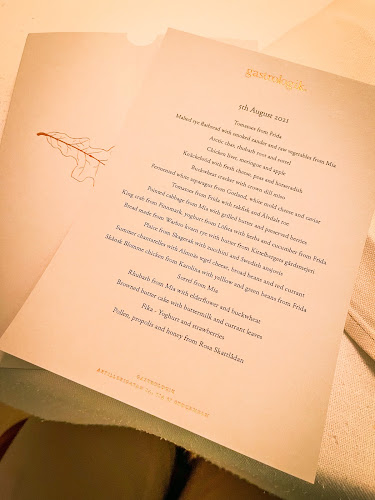 gastrologik.
5th August 2021
Tomatoes from Frida
Malted rye flatbread with smoked zander and raw vegetables from Mia
Arctic char, rhubarb root and sorrel
Chicken liver, meringue and apple
with fresh cheese, pear and horseradish
Buckwheat cracker with crown dill miso
Fermented white asparagus from Gotland, white mold cheese and caviar
Tomatoes from Frida with oakfisk and Älvdals roe
Pointed cabbage from Mia with grilled butter and preserved berries
King crab from Finnmark, yoghurt from Löfsta with herbs and cucumber from Frida
Bread made from Warbro kvarn rye with butter from gårdsmejeri
Plaice from Skagerak with zucchini and Swedish ansjovis
Summer chantarelles with Almnäs tegel cheese, broad beans and red currant
Skånsk Blomme chicken from Karolina with yellow and green beans from Frida
Sorrel from Mia
Rhubarb from Mia with elderflower and buckwheat
Browned butter cake with buttermilk and currant leaves
Fika - Yoghurt and strawberries
Pollen, propolis and honey from Rosa Skattlådan
GASTROLOGIK
ARTILLERIGATAN 14, 114 51 STOCKHOLM